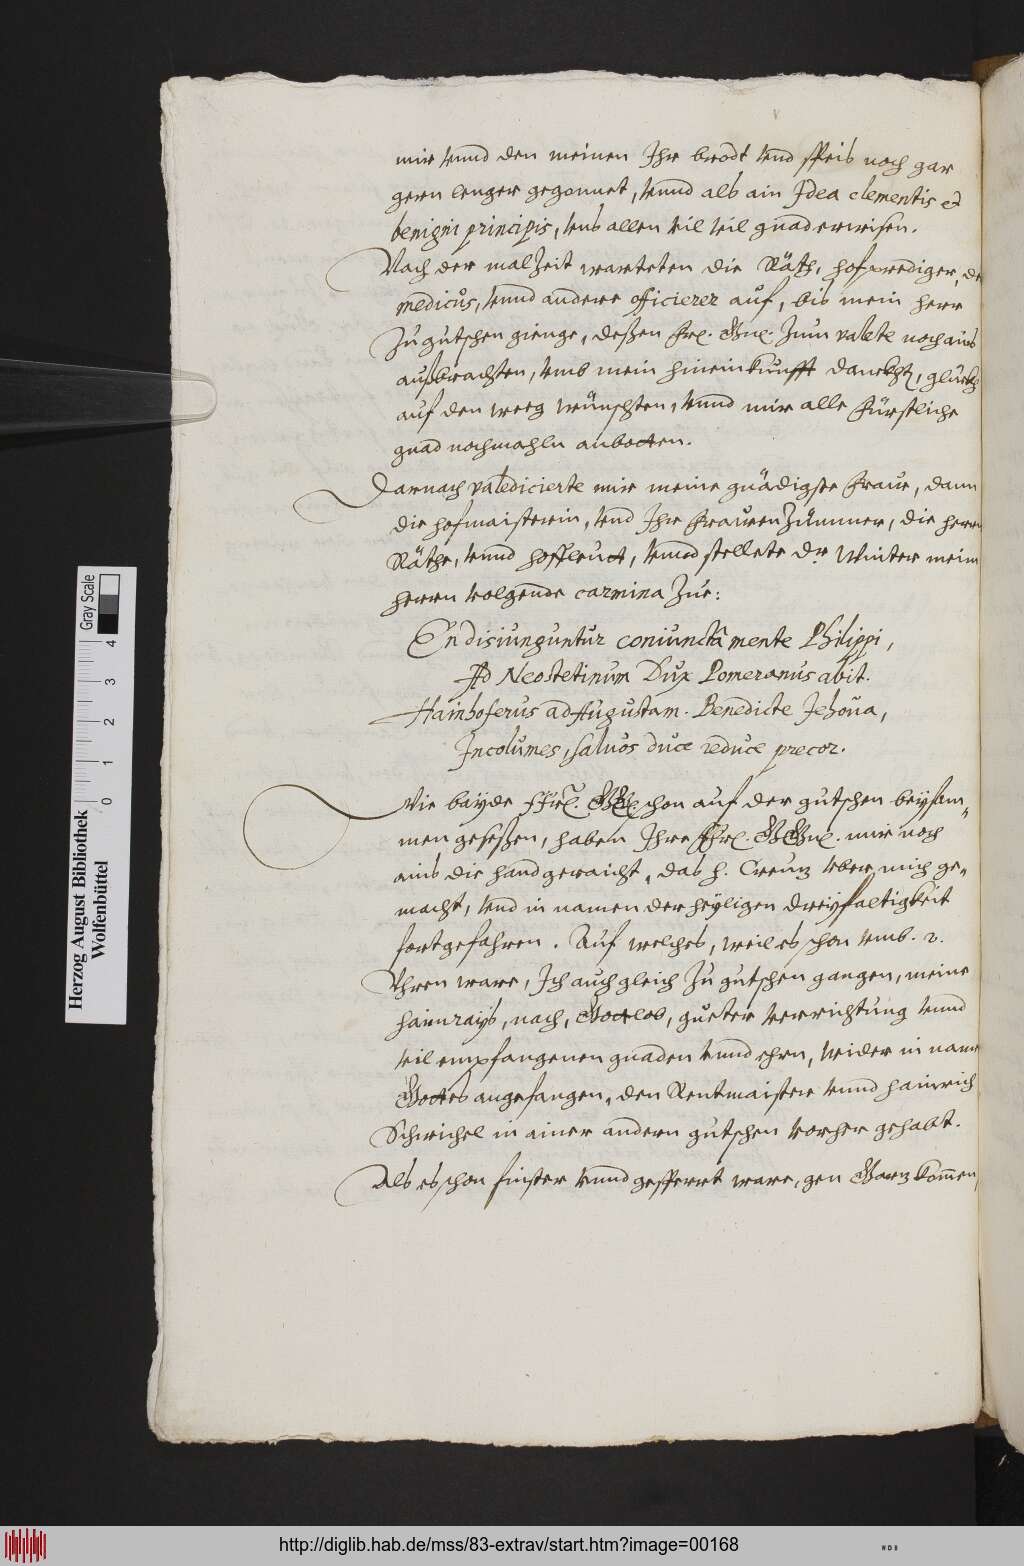 mir vnnd den meinen Ihr brodt vnd speis noch gar
gern lenger gegonnet, vnnd als ain Idea clementis et
benigni principis, vns allen vil vil gnad erwisen.
Nach der malZeit warteten die Räth, hofprediger, de
medicus, vnnd andere officierer auf, bis mein herr
Zu gutschen gienge, deßen frl. Gne. Zum valete noch ains
außbrachten, vmb mein hineinkunfft danckht, glückh
auf den weeg wünschten, vnnd mir alle fürstliche
gnad nochmahln anbotten.
Darnach valedicierte mir meine gnädigste fraue, dann
die hofmaisterin, vnd Ihr frauenZümmer, die herrn
Räthe, vnnd hoffleut, vnnd stellete Dr. Winter meim
herrn volgende carmina Zue:
En disiunguntur coniunctâ mente Philippi,
Ad Neostetinum Dux Pomeranus abit.
Hainhoferus ad Augustam. Benedicte Jehoua,
Incolumes, saluos duce reduce precor.
Wie bayde FFrl. GGe. schon auf der gutschen beysam-
men geseßen, haben Ihre FFrl. GGne. mir noch
ains die hand geraicht, das h. Creuz vber mich ge-
macht, vnd in namen der heyligen dreyfaltigkeit
fortgefahren. Auf welches, weil es schon vmb. 2.
Vhren ware, Ich auch gleich Zu gutschen gangen, meine
haimrays, nach, Gottlob, gueter verrichtung vnnd
vil empfangenen gnaden vnnd ehrn, wider in name
Gottes angefangen, den Rentmaister vnnd Hainrich
Schwichel in ainer andern gutschen vorher gehabt.
Als es schon finster vnnd gesperrt ware, gen Garz kom̅en,
Herzog August Bibliothek
Wolfenbüttel
0 1 2 3 4
Gray Scale
http://diglib.hab.de/mss/83-extrav/start.htm?image=00168
WDB